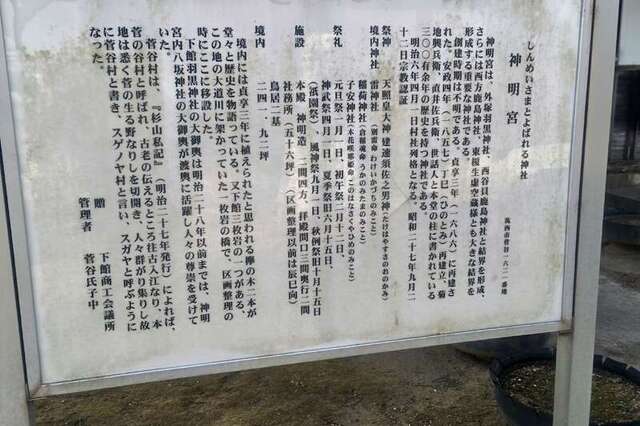 しんめいさまとよばれる神社
神明宮
筑西市菅谷一六二一番地
神明宮は、外塚羽黒神社、西谷貝鹿島神社と結界を形成、
さらには西方鹿島神社、東榎生虚空蔵様とも大きな結界を
形成する重要な神社である。
創建時期は不明である。貞享三年(一六八六)に再建さ
れた。安政四年(一八五七、丁巳・ひのとみ)再建立、菊
地興兵衛、直井佐兵衛、世話人と本堂の柱に書かれている
三〇〇有余年の歴史を持つ神社である。
明治六年四月一日村社列格となる。昭和二十七年九月二
十二日宗教認証
祭神 天照皇大神 建速須佐之男神(たけはやすさのおのかみ)
境内神社 雷神社(別雷命・わけいかづちのみこと)
稲荷神社(倉稲魂命・うかのみたまのみこと)
子安神社(木花咲耶姫・このはなさくやひめのみこと)
祭礼 元旦祭一月一日、初午祭二月十二日、
神武祭四月一日、夏季祭旧六月十五日、
(祇園祭)、風神祭九月一日、秋例祭旧十月十五日
施設 本殿 神明造 二間四方、拝殿間口三間奥行二間
社務所(五十六坪)(区画整理以前は辰巳向)
鳥居一基
境内 二四一、九二坪
境内には貞享三年に植えられたと思われる欅の木二本が
堂々と歴史を物語っている。又下館三枚岩の一つがある、
この地の大道川に架かっていた一枚岩の橋で、区画整理の
時にここに移設した。
下館羽黒神社の大御輿は明治二十八年以前までは、神明
宮内八坂神社の大御輿が渡輿に活躍し人々の尊崇を受けて
いた。
菅谷村は、『杉山私記』(明治二十七年発行)によれば、
菅の谷村と呼ばれ、古老の伝えるところ往古入江なり、本
地は悉く菅の生る野なりしを切開き、人々群がり集りし故
に菅谷村と書き、スゲノヤ村と言い、スガヤと呼ぶように
なった。
贈 下館商工会議所
管理者 菅谷氏子中